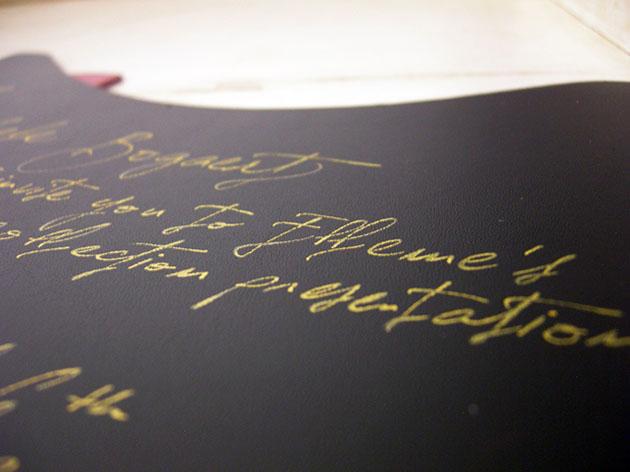 Bogaert
invite you to Effeme's
collection presentation
th